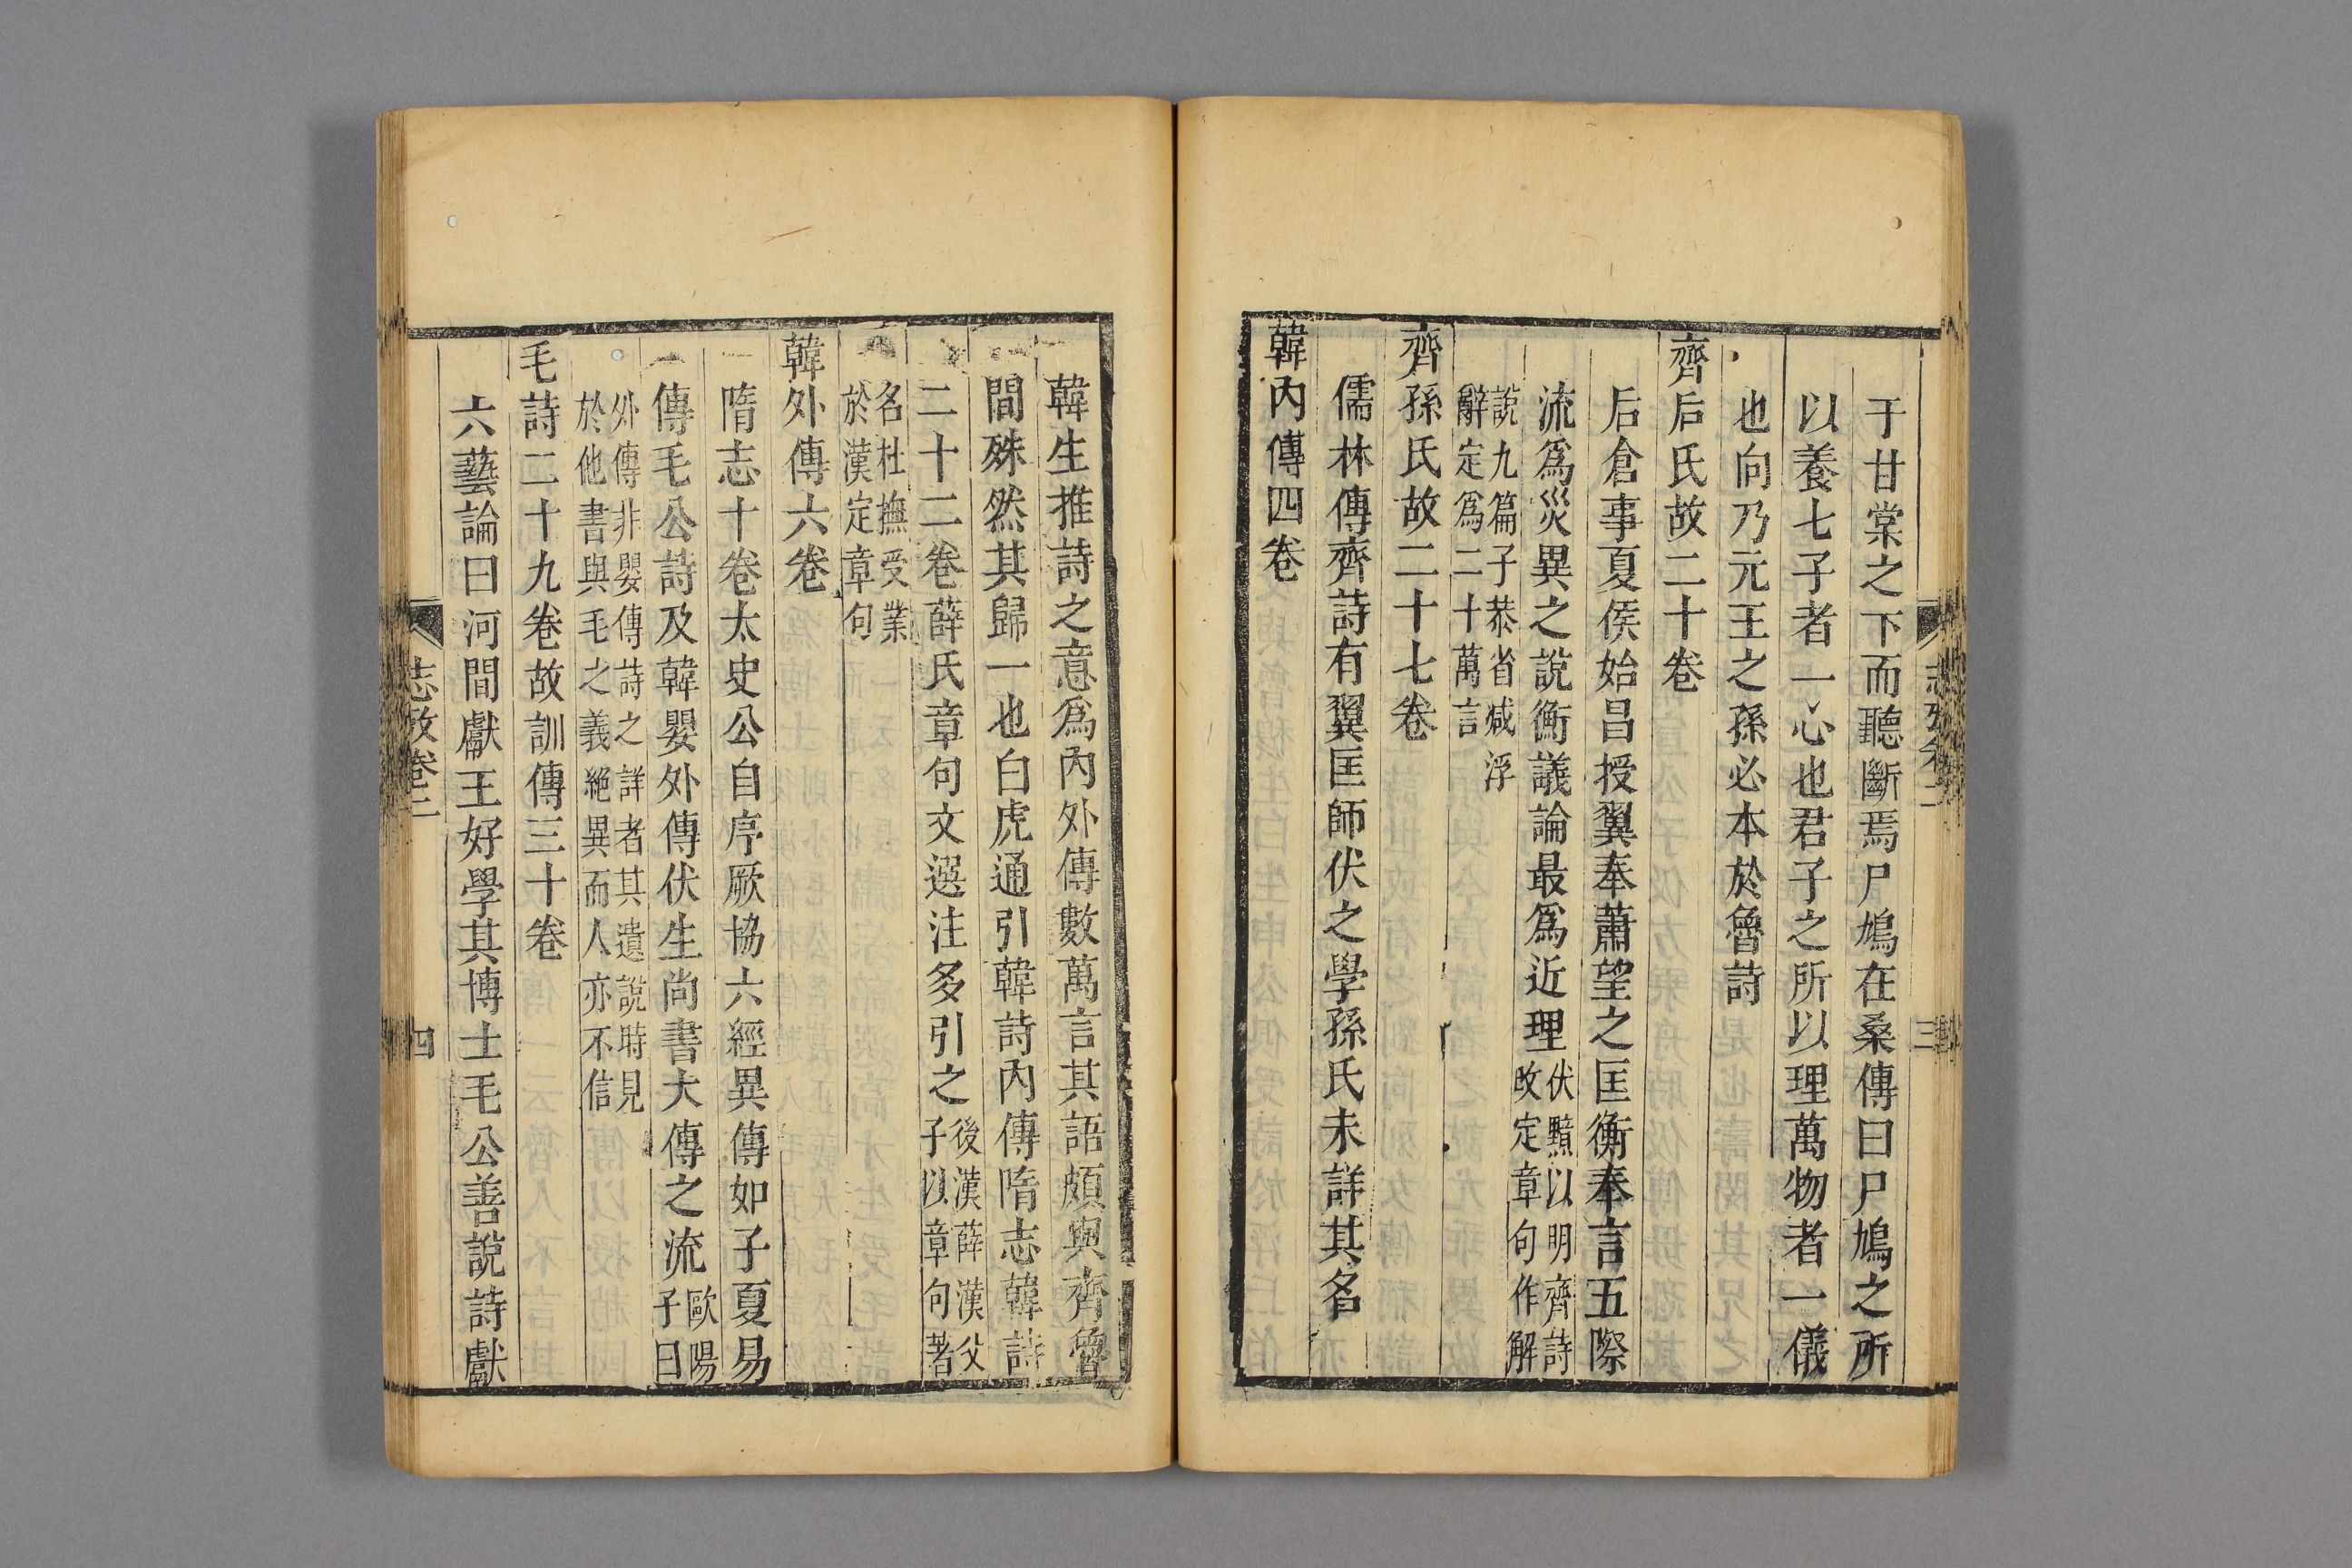 于甘棠之下而聽斷焉尸鳩在桑傳曰尸鳩之所
以養七子者一心也君子之所以理萬物者一儀
也向乃元王之孫必本於魯詩
齊后氏故二十卷
后倉事夏侯始昌授翼奉蕭望之匡衡奉言五際
流爲災異之說衡議論最爲近理伏黯以明齊詩
改定章句作解
說九篇子恭省减浮
辭定爲二十萬言
齊孫氏故二十七卷
儒林傳齊詩有翼匡師伏之學孫氏未詳其名
韓內傳四卷
志攷卷二
三
韓生推詩之意爲內外傳數萬言其語頗與齊魯
間殊然其歸一也白虎通引韓詩內傳隋志韓詩
二十二卷薛氏章句文選注多引之後漢薛漢父
子以章句著
名杜撫受業
於漢定章句
韓外傳六卷
隋志十卷太史公自序厥協六經異傳如子夏易
傳毛公詩及韓嬰外傳伏生尚書大傳之流歐陽
子曰
外傳非嬰傳詩之詳者其遺說時見
於他書與毛之義絕異而人亦不信
毛詩二十九卷故訓傳三十卷
六藝論曰河間獻王好學其博士毛公善說詩獻
志攷卷二
四